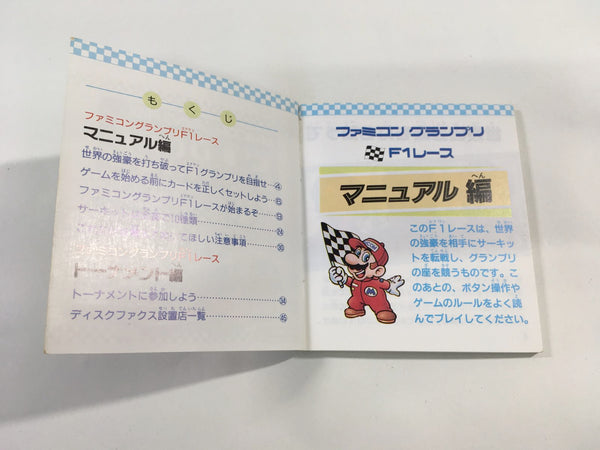 もくじ
ファミコングランプリF1レース
マニュアル編
世界の強豪を打ち破ってF1グランプリを目指せ…④
ゲームを始める前にカードを正しくセットしよう…
ファミコングランプリF1レースが始まるぞ…
サーキットは
10種類
てほしい注意事項…㉚
ファミコングランプリF1レース
トーナメント編
トーナメントに参加しよう…㉞
ディスクファクス設置店一覧…㊺
ファミコン グランプリ
F1レース
マニュアル 編
このF1レースは、世界
の強豪を相手にサーキッ
トを転戦し、グランプリ
の座を競うものです。こ
のあとの、ボタン操作や
ゲームのルールをよく読
んでプレイしてください。